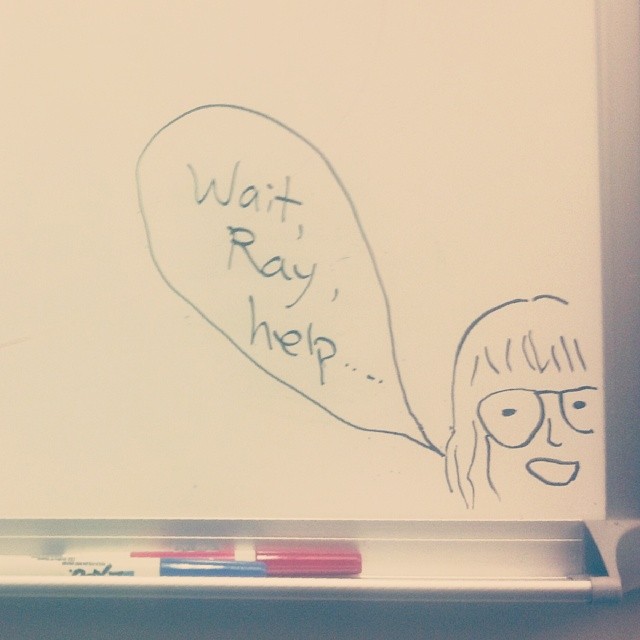 Wait,
Ray,
help....